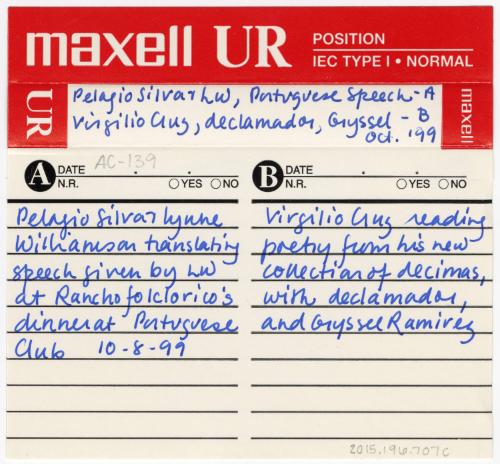 maxell UR POSITION
IEC TYPE I • NORMAL
UR
Pelagio Silvar LW, Portuguese Speech - A
Virgilio Cruz, declamador, Gryssel - B
Oct. '99
maxell
A DATE AC-139 . .
N.R. ○YES ○NO
Pelagio Silvar Lynne
Williamson translating
speech given by LW
at Rancho folclorico's
dinner at Portuguese
Club 10-8-99
B DATE . .
N.R. ○YES ○NO
Virgilio Cruz reading
poetry from his new
collection of decimas,
with declamador,
and Gryssel Ramirez
2015.196.707c